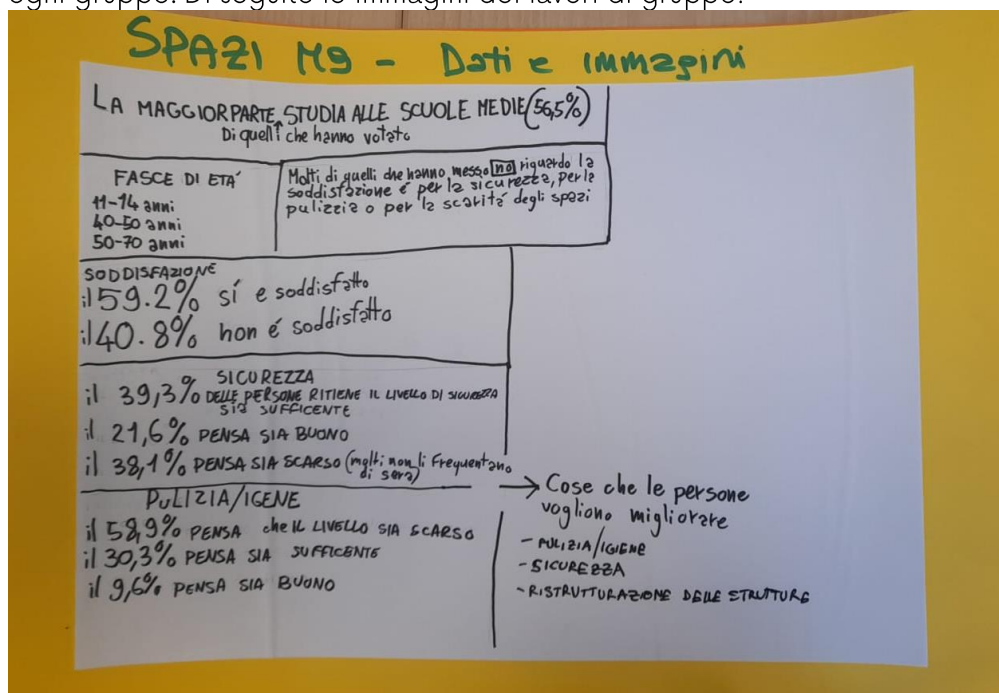 ogni gruppo. Di seguito le immagini dei lavori di gruppo.
SPAZI M9 - Dati e immagini
LA MAGGIORPARTE STUDIA ALLE SCUOLE MEDIE (56,5%)
Di quelli che hanno votato
FASCE DI ETA'
11-14 anni
40-50 anni
50-70 anni
Molti di quelli che hanno messo no riguardo la
soddisfazione é per la sicurezza, per la
pulizzia o per la scarità degli spazi
SODDISFAZIONE
il 59.2% sí e soddisfatto
il 40.8% non é soddisfatto
SICUREZZA
il 39,3% DELLE PERSONE RITIENE IL LIVELLO DI SICUREZZA
SIA SUFFICENTE
il 21,6% PENSA SIA BUONO
il 38,1% PENSA SIA SCARSO (molti non li frequentano
di sera)
PULIZIA/IGENE
il 58,9% PENSA che IL LIVELLO SIA SCARSO
il 30,3% PENSA SIA SUFFICENTE
il 9,6% PENSA SIA BUONO
→ Cose che le persone
vogliono migliorare
- PULIZIA/IGIENE
- SICUREZZA
- RISTRUTTURAZIONE DELLE STRUTTURE